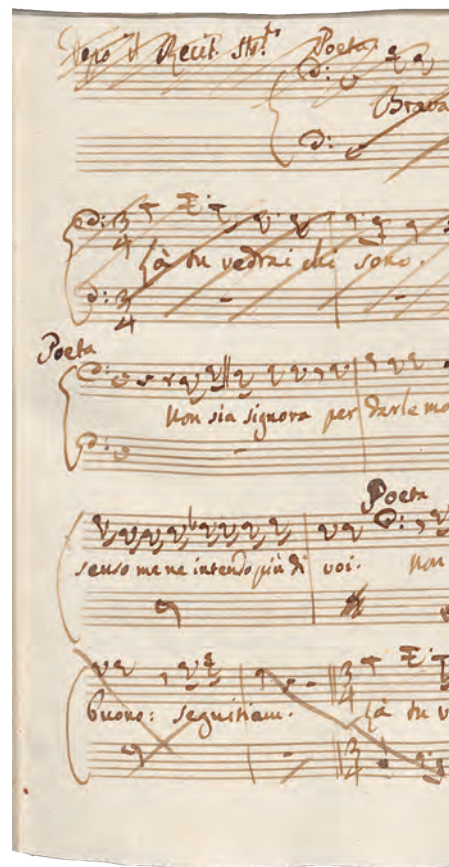 Dopo il Recit. Str.ti Poeta
Brava
là tu vedrai chi sono.
Poeta
Non sia signora per darle mo
Poeta
senso me ne intendo più di voi. Non
buono: seguitiam. là tu v